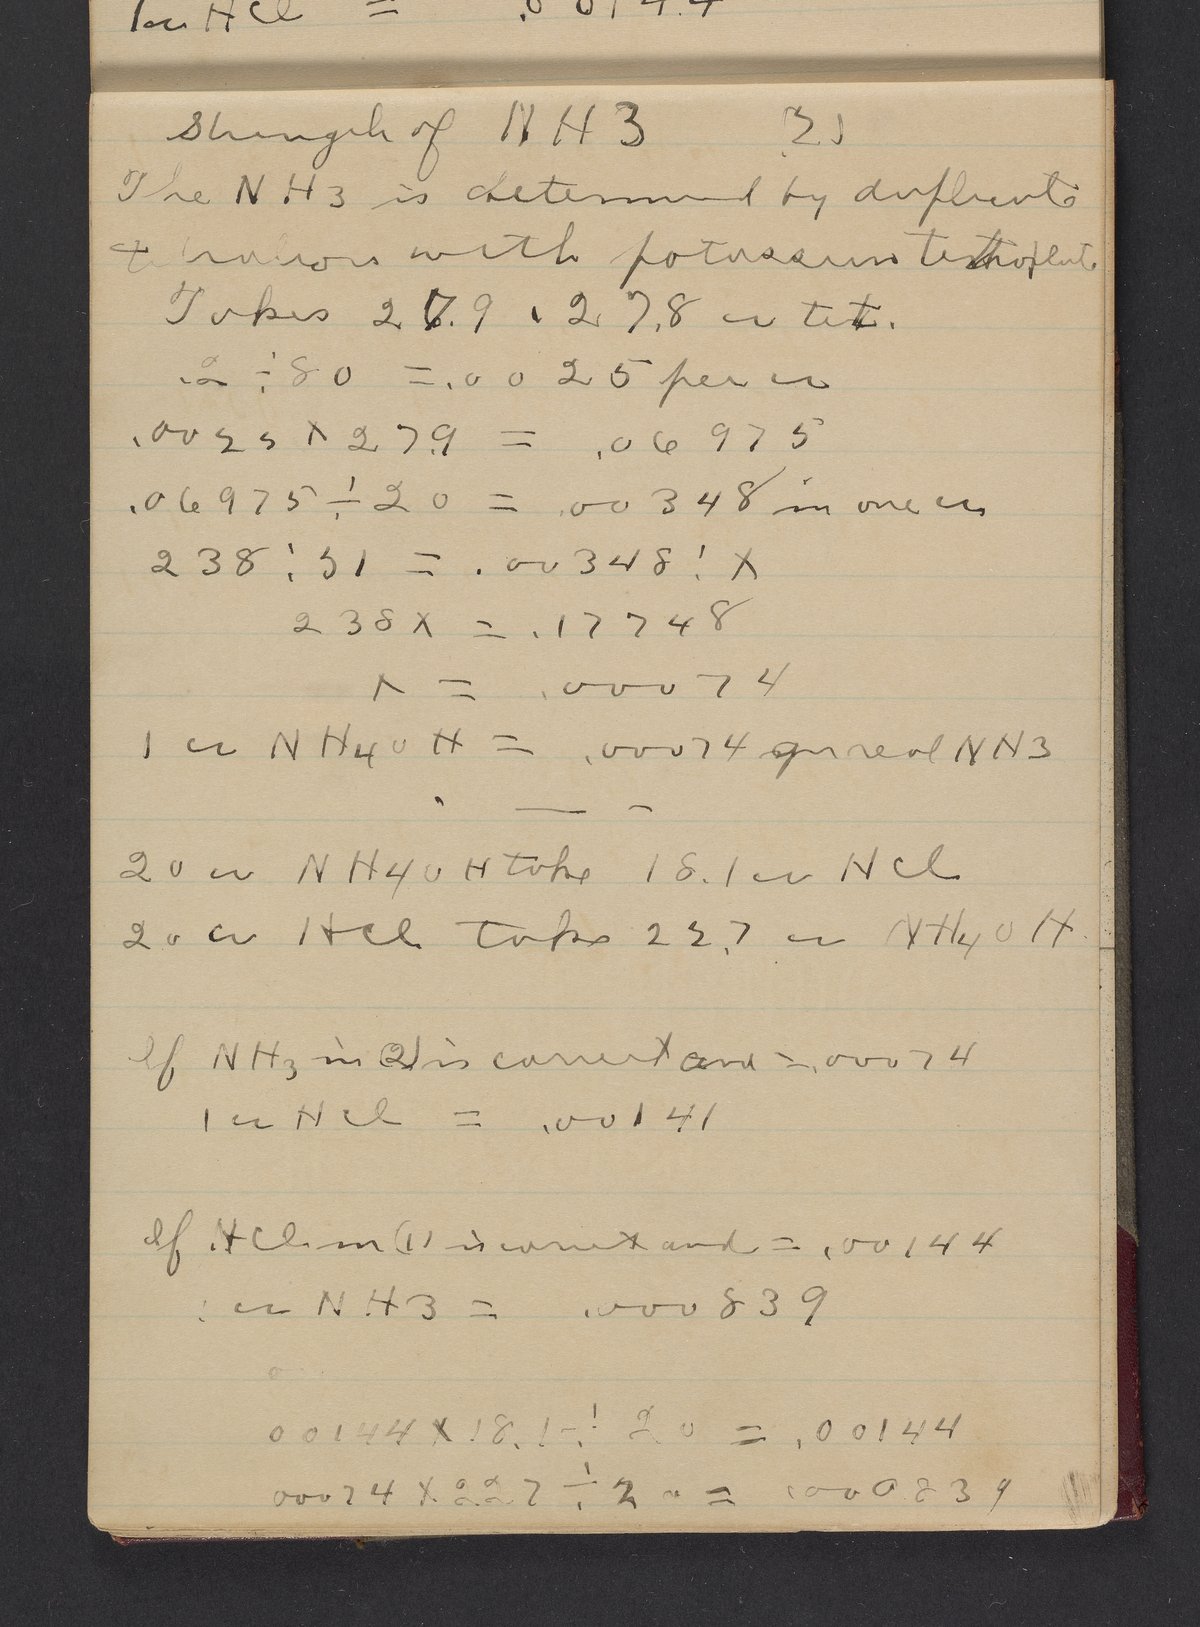 1 cc HCl = .00144
Strength of NH3 2)
The NH3 is determined by duplicate
titrations with potassium tetroxalate
Takes 27.9 , 27.8 cc tet.
.2 ÷ 80 = .0025 per cc
.0025 x 27.9 = .06975
.06975 ÷ 20 = .00348 in one cc
238 : 51 = .00348 : x
238x = .17748
x = .00074
1 cc NH4OH = .00074 gm real NH3
20 cc NH4OH take 18.1 cc HCl
20 cc HCl take 22.7 cc NH4OH
If NH3 in (2) is correct and = .00074
1 cc HCl = .00141
If HCl in (1) is correct and = .00144
1 cc NH3 = .000839
00144 x 18.1 ÷ 20 = .00144
00074 x 227 ÷ 20 = .000839